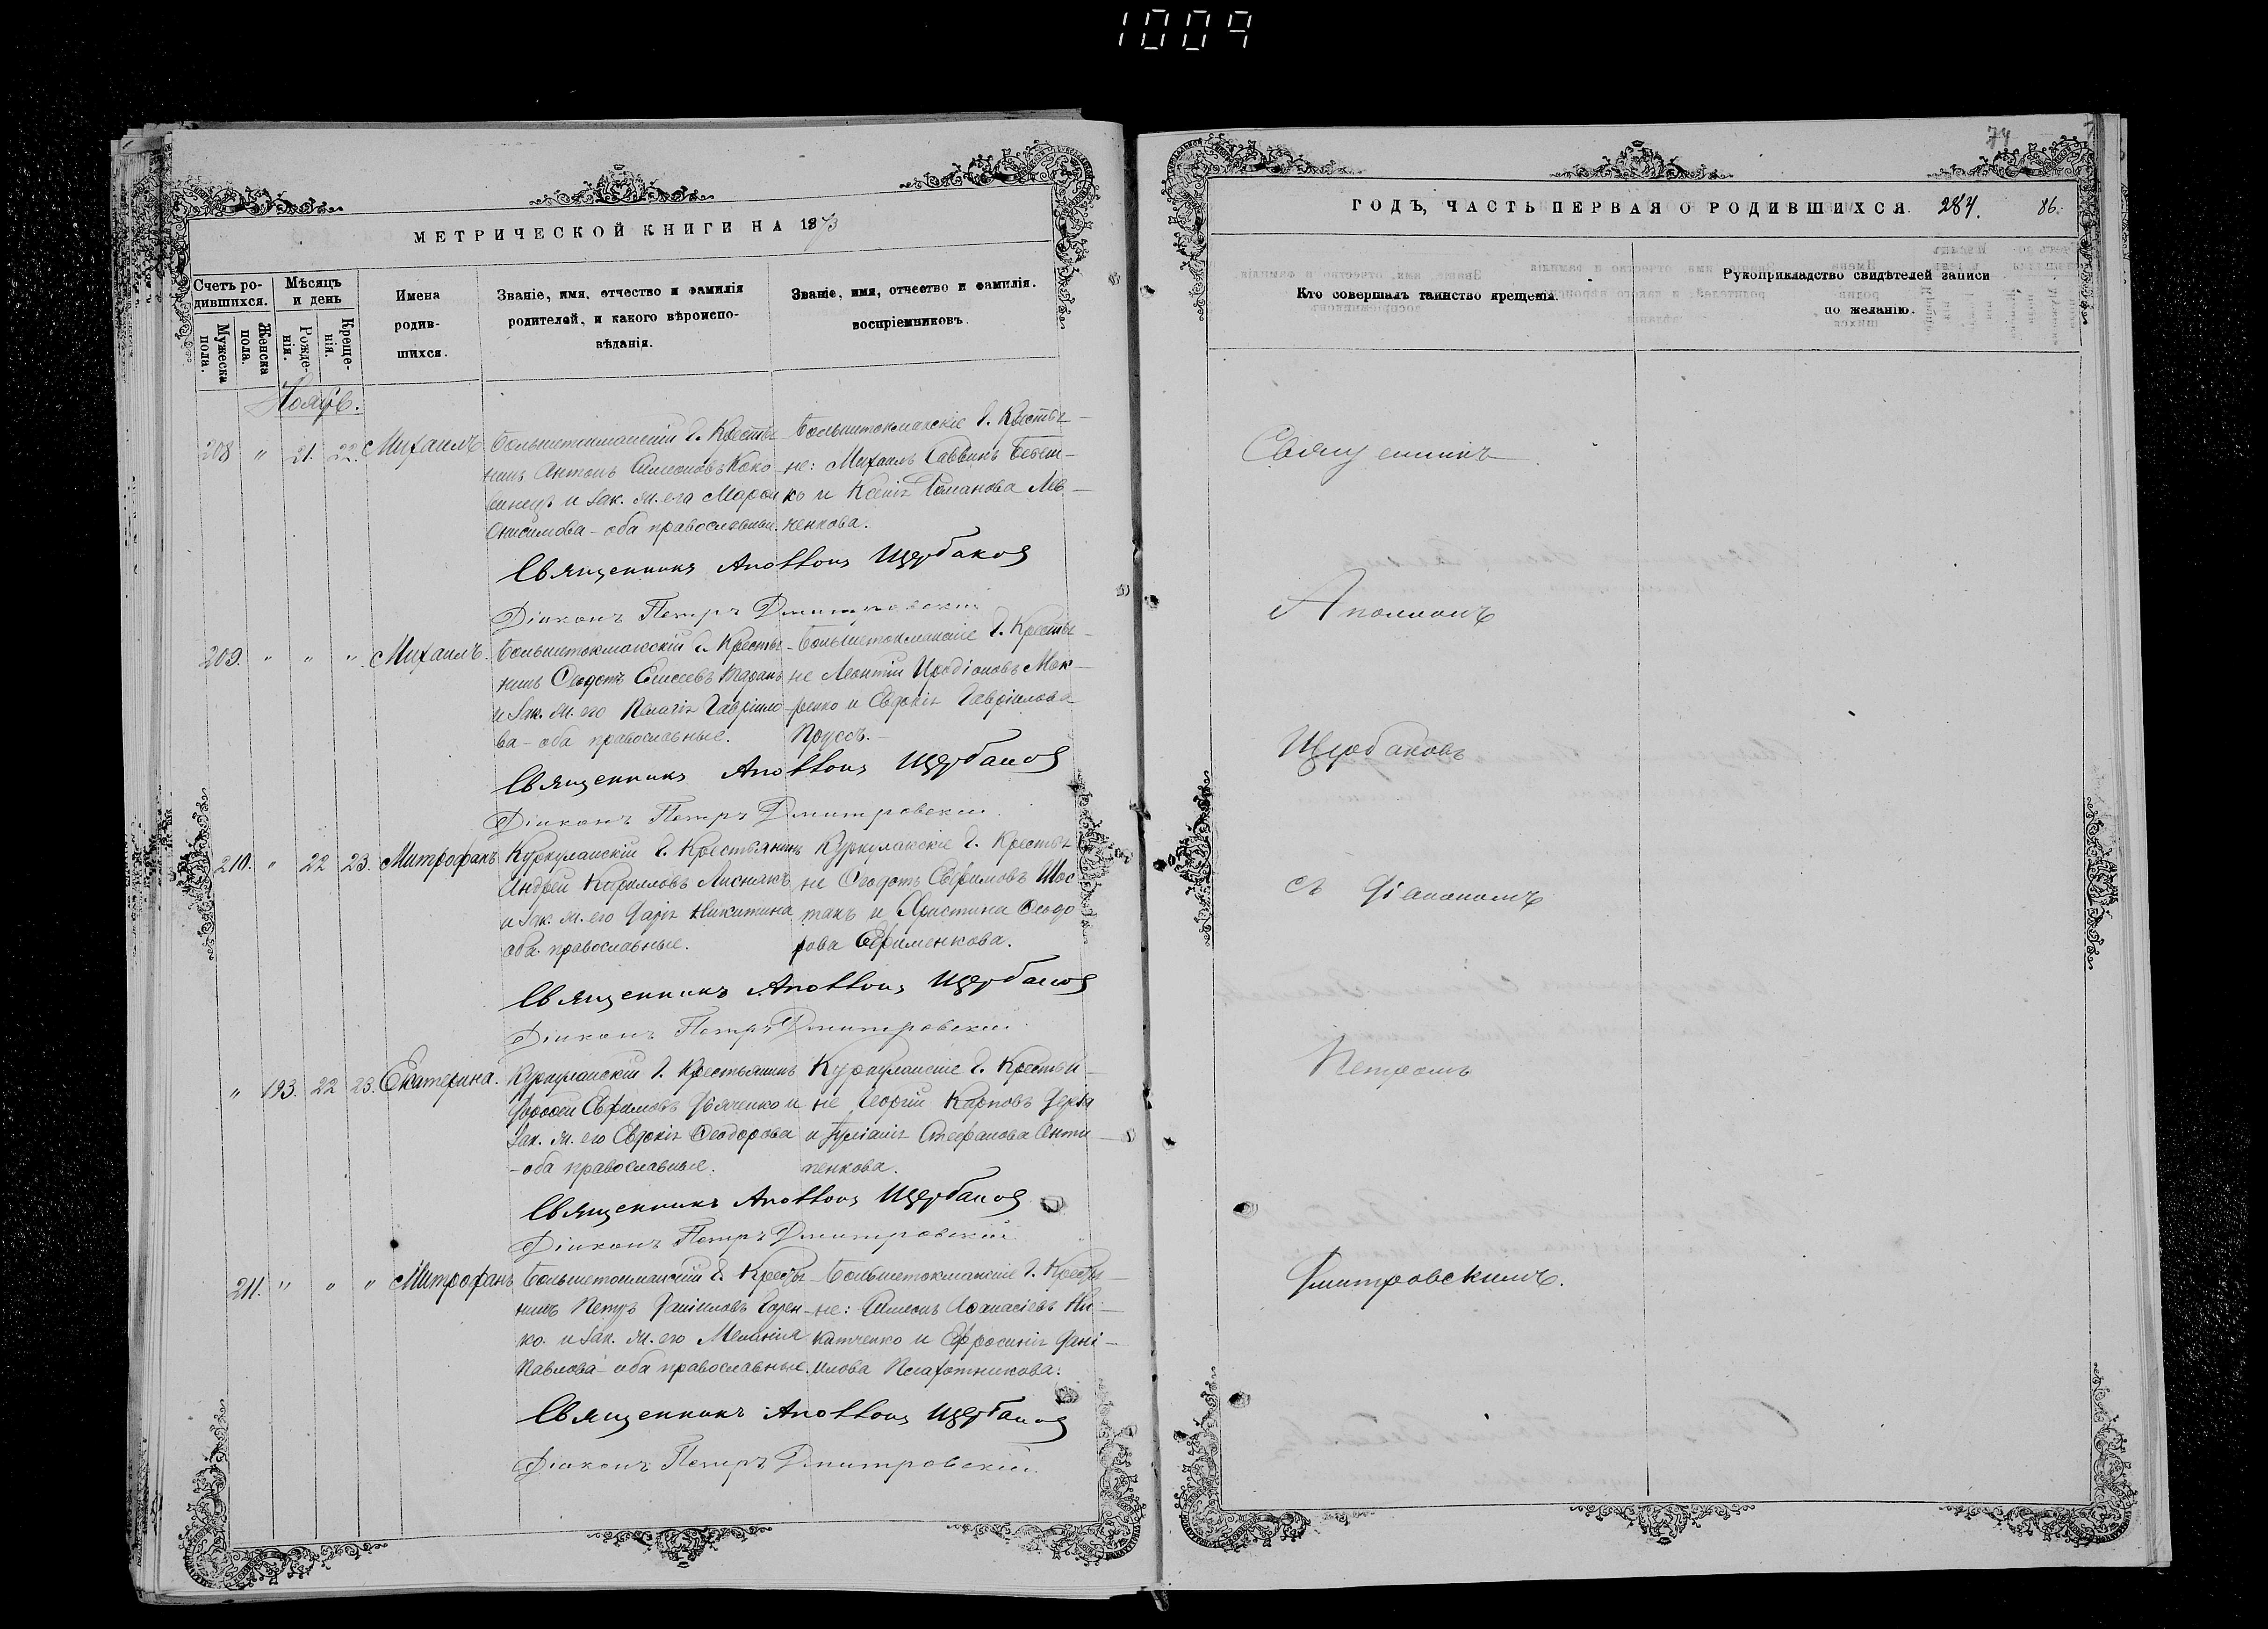 1009
74
МЕТРИЧЕСКОЙ КНИГИ НА 1873
Счетъ родившихся.
Мужеска пола.
Женска пола.
Мѣсяцъ и день
Рожденія.
Крещенія.
Имена родившихся.
Званіе, имя, отчество и фамилія родителей, и какого вѣроисповѣданія.
Званіе, имя, отчество и фамилія воспріемниковъ.
Ноябрь.
208 " 21. 22. Михаилъ
Большетокмакскій г. Крестья-
нинъ Антонъ Симеоновъ
и зак. ж. его
Онисимова - оба православныи.
Большетокмакскіе г. Крестья-
не: Михаилъ Саввинъ
ко и Ксенія Романова Лев-
ченкова.
Священникъ Аполлонъ Щербаковъ
Діаконъ Петръ Дмитровскій
209. " " " Михаилъ.
Большетокмакскій г. Крестья-
нинъ Ѳеодотъ Елисеевъ Таранъ
и зак. ж. его Пелагія Гавріило-
ва - оба православные.
Большетокмакскіе г. Крестья-
не Леонтій Иродіоновъ Мок-
ренко и Евдокія Гавріилова
Пруссъ.
Священникъ Аполлонъ Щербаковъ
Діаконъ Петръ Дмитровскій.
210. " 22 23. Митрофанъ
Куркулакскій г. Крестьянинъ
Андрей Кирилловъ Лиснякъ
и зак. ж. его Дарія Никитина
оба православные.
Куркулакскіе г. Крестья-
не Ѳеодотъ Евфимовъ Шос-
такъ и Христина Ѳеодо-
рова Ефименкова.
Священникъ Аполлонъ Щербаковъ
Діаконъ Петръ Дмитровскій
" 193. 22 23. Екатерина.
Куркулакскій г. Крестьянинъ
Евфимовъ Дьяченко и
зак. ж. его Евдокія Ѳеодорова
- оба православные.
Куркулакскіе г. Крестья-
не Георгій Карповъ
и Іуліанія Стефанова Анти-
пенкова.
Священникъ Аполлонъ Щербаковъ
Діаконъ Петръ Дмитровскій
211. " " " Митрофанъ
Большетокмакскій г. Крестья-
нинъ Петръ Даніиловъ Горен-
ко и зак. ж. его Меланія
Павлова - оба православные.
Большетокмакскіе г. Крестья-
не: Симеонъ Аѳанасіевъ Ни-
китченко и Ефросинія Дані-
илова Плахотникова.
Священникъ Аполлонъ Щербаковъ
Діаконъ Петръ Дмитровскій.
ГОДЪ, ЧАСТЬ ПЕРВАЯ О РОДИВШИХСЯ. 284. 86.
Кто совершалъ таинство крещенія.
Рукоприкладство свидѣтелей записи по желанію.
Священникъ
Аполлонъ
Щербаковъ
съ Діакономъ
Петромъ
Дмитровскимъ.